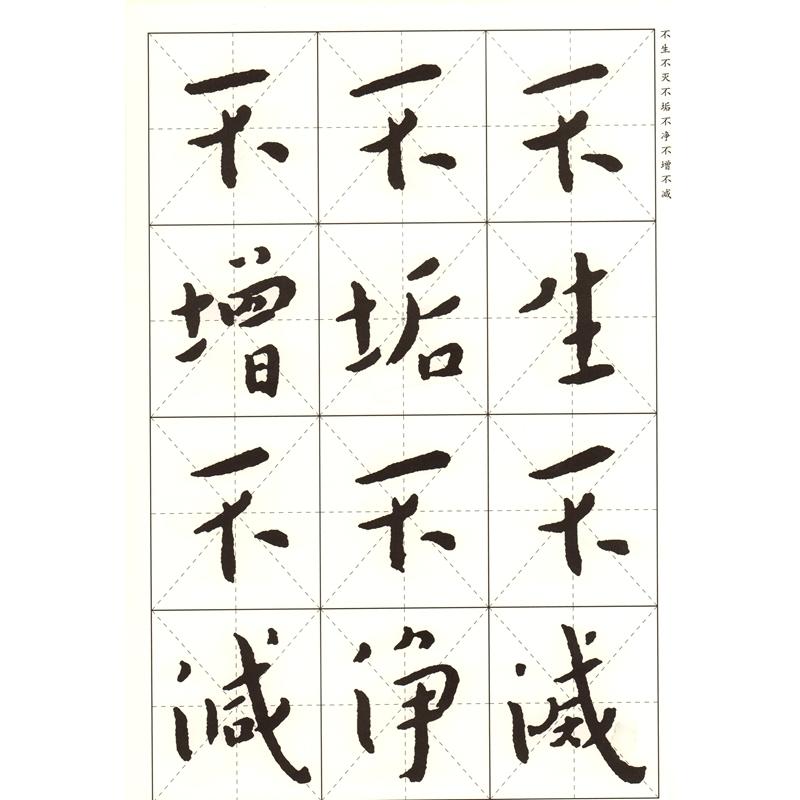 不生不灭不垢不净不增不减
不生不滅
不垢不净
不增不減